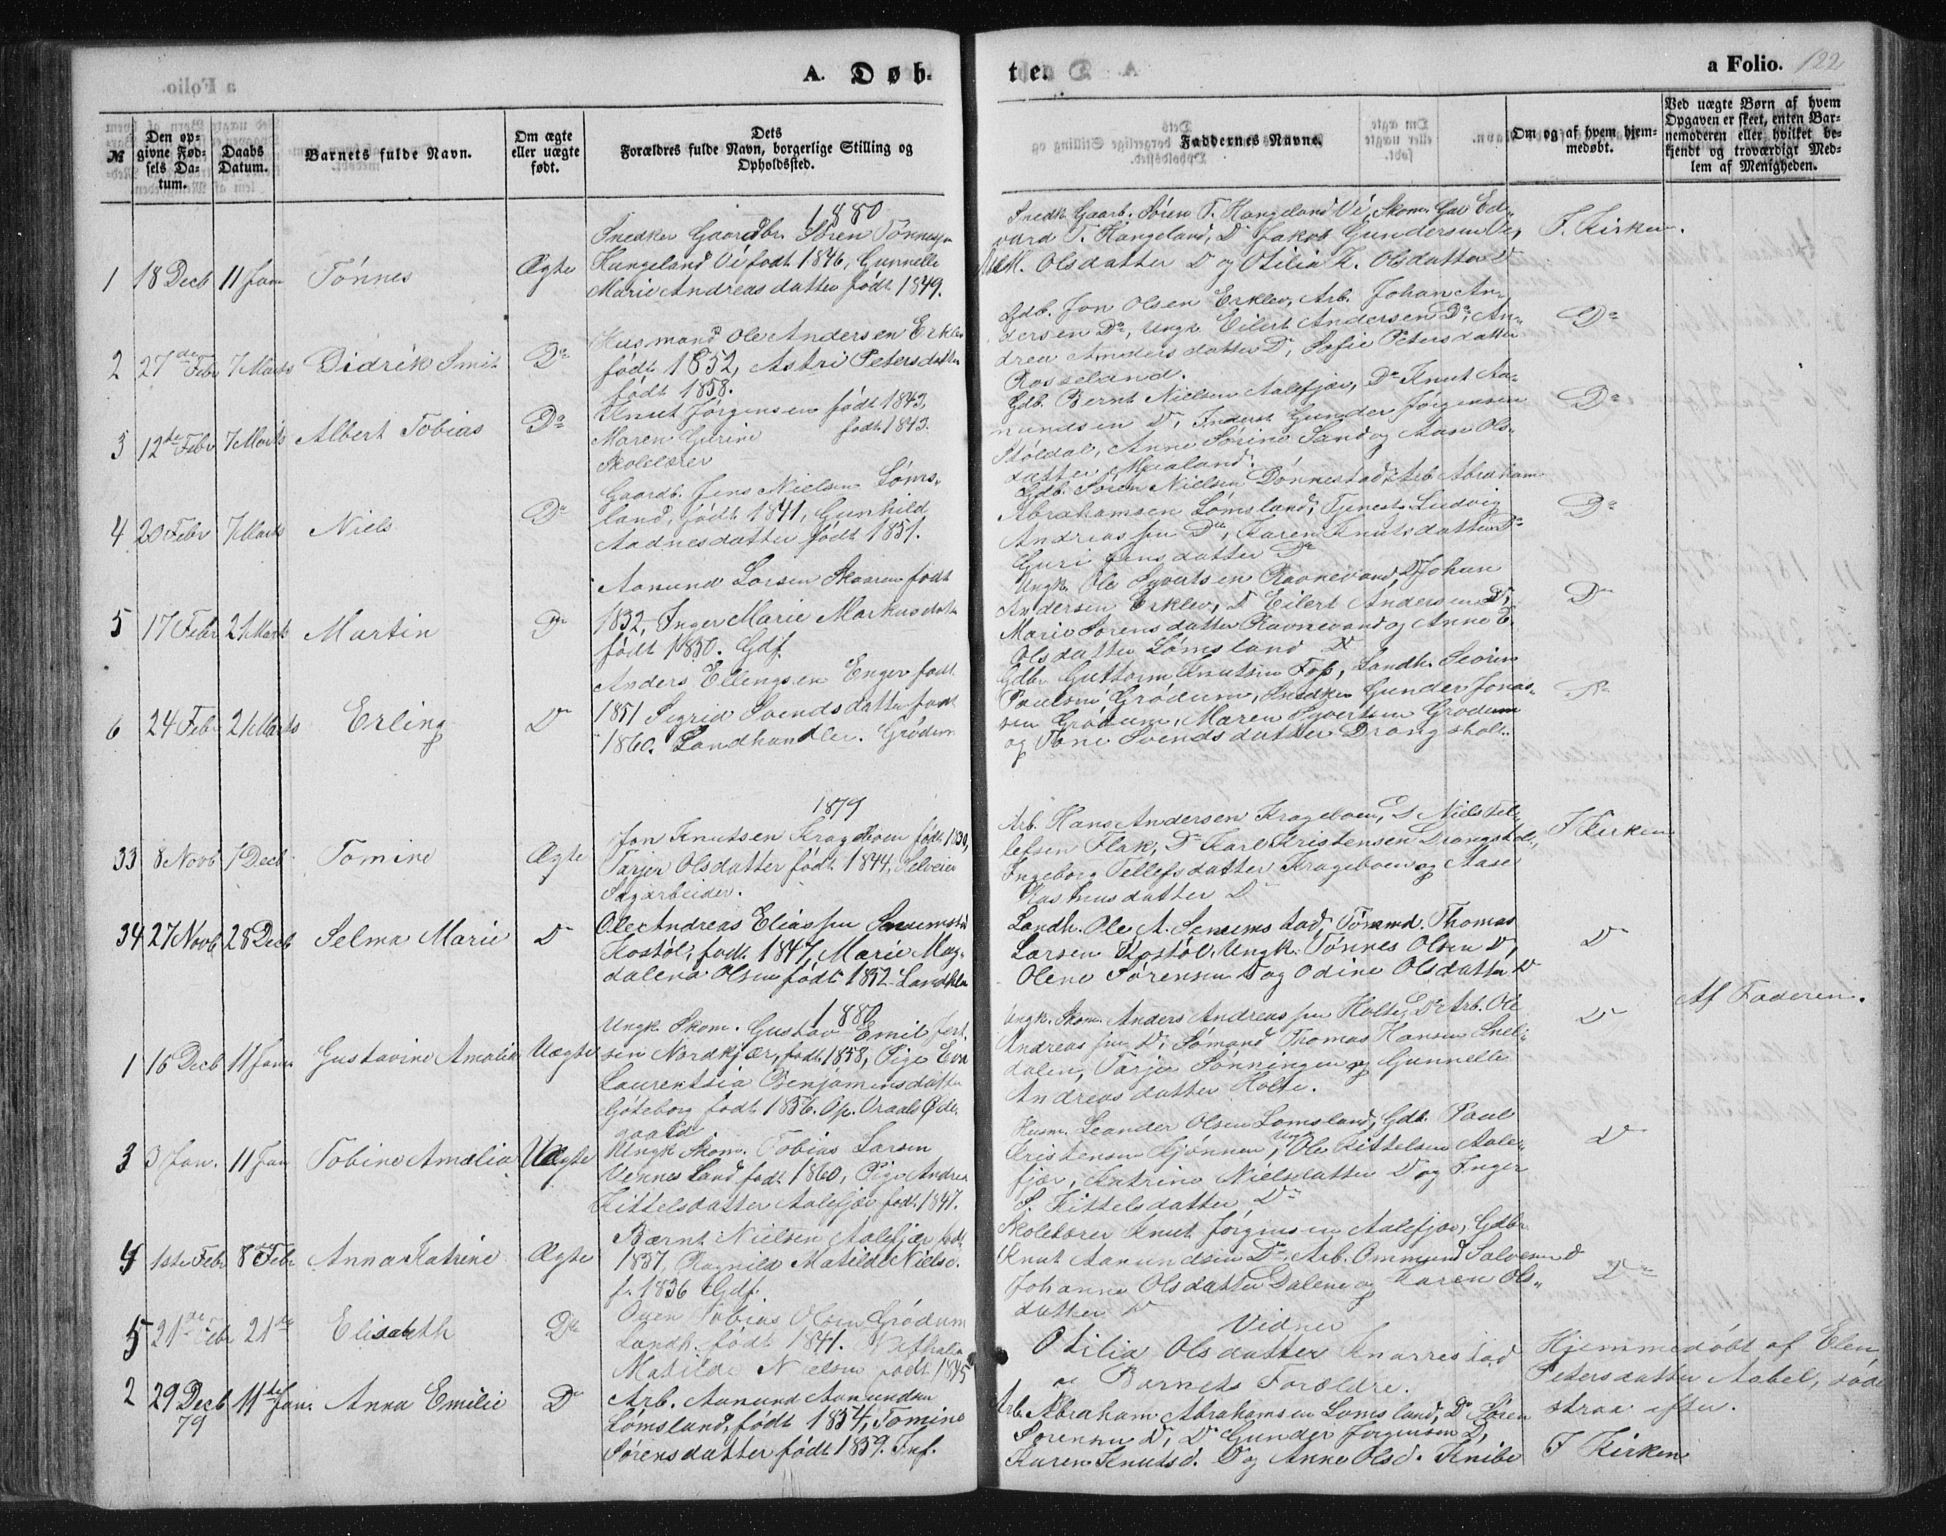 A. Døb-
te.
a Folio. 122
№
Den opgivne Fødsels Datum.
Daabs Datum.
Barnets fulde Navn.
Om ægte eller uægte født.
Dets Forældres fulde Navn, borgerlige Stilling og Opholdssted.
Faddernes Navne.
Om og af hvem hjemmedøbt.
Ved uægte Børn af hvem Opgaven er skeet, enten Barnemoderen eller hvilket bekjendt og troværdigt Medlem af Menigheden.
1880
1 18 Decb 11 Jan Tønnes Ægte
Snedker Gaardbr. Søren Tønnesen
Hangeland Vé født 1846, Gunnelle
Marie Andreasdatter født 1849.
Snedk. Gaarb. Søren T. Hangeland Vé, Skom. Ed-
vard T. Hangeland, D Jakob Gundersen Vé,
Olsdatter D og Otilia K. Olsdatter D
I. Kirken.
2 27de Febr 7 Marts Didrik Smit Do
Husmand Ole Andersen Erklev
født 1852, Astri Petersdatter
født 1858.
Gdb. Jon Olsen Erklev, Arb. Johan An-
dersen Do, Ungk. Eilert Andersen Do, An-
drea Andersdatter D, Sofie Petersdatter
Rosseland.
Do
3 12te Febr 7 Marts Albert Tobias Do
Knut Jørgensen født 1842
Maren Gurine født 1843.
Skolelærer
Gdb. Bernt Nielsen Aalefjær, Do Knut Aa-
nundsen D, Inderst Gunder Jørgensen
Støldal, Anne Sørine Sand og Aase Ols-
datter Mæaland.
Do
4 20 Febr 7 Marts Niels Do
Gaardb. Jens Nielsen Løms-
land, født 1841, Gunhild
Aadnesdatter født 1851.
Gdb. Søren Nielsen Dønnestad, Arb Abraham
Abrahamsen Lømsland, Tjenest. Ludvig
Andreassen Do, Karen Knutsdatter Do
Guri Jensdatter Do
Do
5 17 Febr 21 Marts Martin Do
Aanund Larsen Skaaren født
1832, Inger Marie Markusdatt
født 1830. Gdf.
Ungk. Ole Syvertsen Ravnevand, D Johan
Andersen Erklev, D Eilert Andersen D,
Marie Sørensdatter Ravnevand og Anne E.
Olsdatter Lømsland D
Do
6 24 Febr 21 Marts Erling D
Anders Ellingsen Enger født
1851 Sigrid Svendsdatter født
1860. Landhandler. Grødum
Gdbr Guttorm Knutsen Foss, Landh. Severin
Paulsen, Grødum, Snedker Gunder Jonas-
sen Grødum, Maren Syvertsen Grødum
og Tone Svendsdatter Drangsholt.
Do
1879
33 8 Novb 7 Decb Tomine Ægte
Jon Knutsen Krageboen født 1830,
Tarjer Olsdatter født 1844, Selveier
Sagarbeider.
Arb. Hans Andersen Krageboen, D Niels Tel-
lefsen Flak, Do Karl Kristensen Drangsholt,
Ingeborg Tellefsdatter Krageboen og Aase
Rasmusdatter D
I Kirken
34 27 Novb 28 Decb Selma Marie D
Ole Andreas Eliassen Senumstad
Kostøl, født 1847, Marie Mag-
dalena Olsen født 1852 Landhl
Landh. Ole A. Senumstad, Tømmd. Thomas
Larsen Kostøl, Ungk. Tønnes Olsen D,
Olene Sørensen D og Odine Olsdatter D
D
1880
1 16 Decb 11 Jan. Gustavine Amalie Uægte
Ungk. Skom. Gustav Emil Jert-
sen Nordkjær, født 1858, Pige Eva
Laurentsia Benjaminsdatter
Gøteborg født 1856. Op. Vraals Øde-
gaard
Ungk. Skom. Anders Andreassen Holte, Do Arb. Ole
Andreassen D, Sømand Thomas Hansen Snel-
dalen, Tarjer Sønningen og Gunnelle
Andreasdatter Holte.
D
Af Faderen.
3 3 Jan. 11 Jan Tobine Amalia Uægte
Ungk Skom. Tobias Larsen
Vennesland født 1860, Pige Andrea
Kittelsdatter Aalefjær født 1847.
Husm. Leander Olsen Lomsland, Gdb. Paul
Kristensen Kjønnen, Ungk Ole Kittelsen Aale-
fjær, Katrine Nielsdatter D og Inger
S. Kittelsdatter Do
D
4 1ste Febr 8de Febr Anna Katrine Ægte
Bærnt Nielsen Aalefjær født
1837, Ragnild Matilde Nielsd.
f. 1836 Gdf.
Skolelærer Knut Jørgensen Aalefjær, Gdbr
Knut Aanundsen Do, Arb. Ommund Salvesen D
Johanne Olsdatter Dalene og Karen Ols-
datter D
Do
5 21de Febr 21de Elisabeth Do
Tobias Olsen Grødum
Landh. født 1841.
Matilde Nielsen født 1845
Vidner
Otilia Olsdatter Knarrestad
og Barnets Forældre.
Hjemmedøbt af Elen
Petersdatter Aabel, døde
strax efter.
2 29 Decb 79 11te Jan. Anna Emilie D
Arb. Aanund Aanundsen
Lømsland, født 1854, Tomine
Sørensdatter født 1859. Inf.
Arb. Abraham Abrahamsen Lomsland, Do Søren
Sørensen D, Do Gunder Jørgensen D,
Karen Knutsd. D og Anne Olsd. Knibe
I Kirken